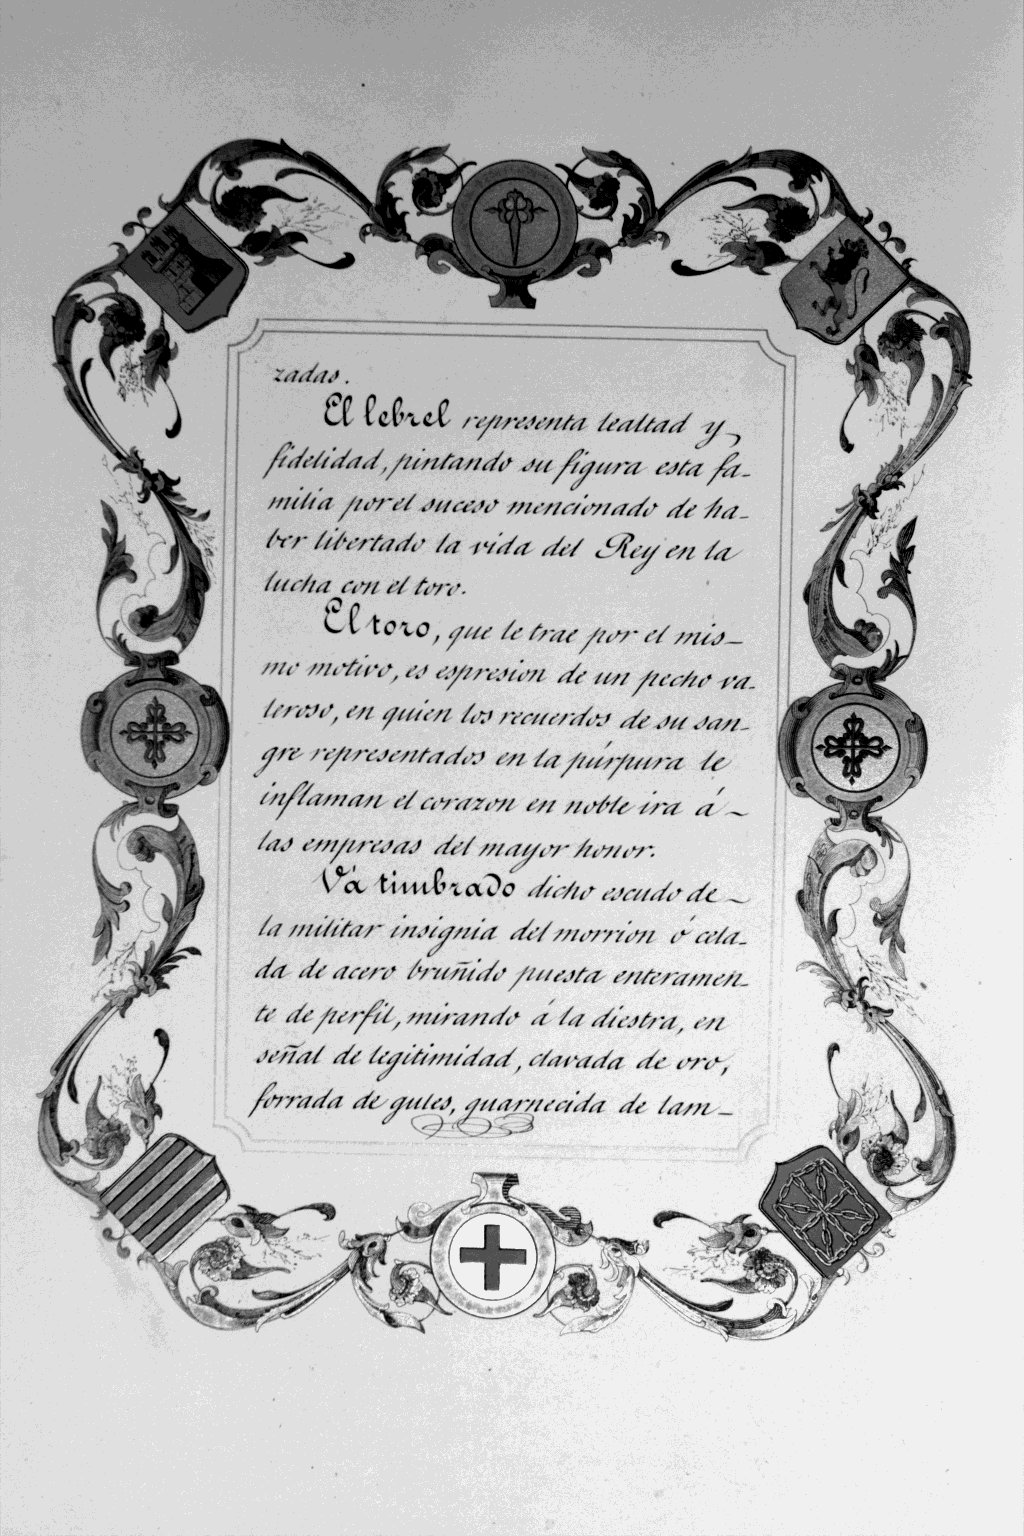 zadas.
El lebrel representa lealtad y
fidelidad, pintando su figura esta fa-
milia por el suceso mencionado de ha-
ber libertado la vida del Rey en la
lucha con el toro.
El toro, que le trae por el mis-
mo motivo, es espresion de un pecho va-
leroso, en quien los recuerdos de su san-
gre representados en la púrpura le
inflaman el corazon en noble ira á
las empresas del mayor honor.
Vá timbrado dicho escudo de
la militar insignia del morrion ó cela-
da de acero bruñido puesta enteramen-
te de perfil, mirando á la diestra, en
señal de legitimidad, clavada de oro,
forrada de gules, guarnecida de lam-